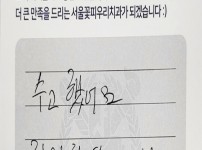 더 큰 만족을 드리는 서울꽃피우리치과가 되겠습니다 :)
수고 했어요